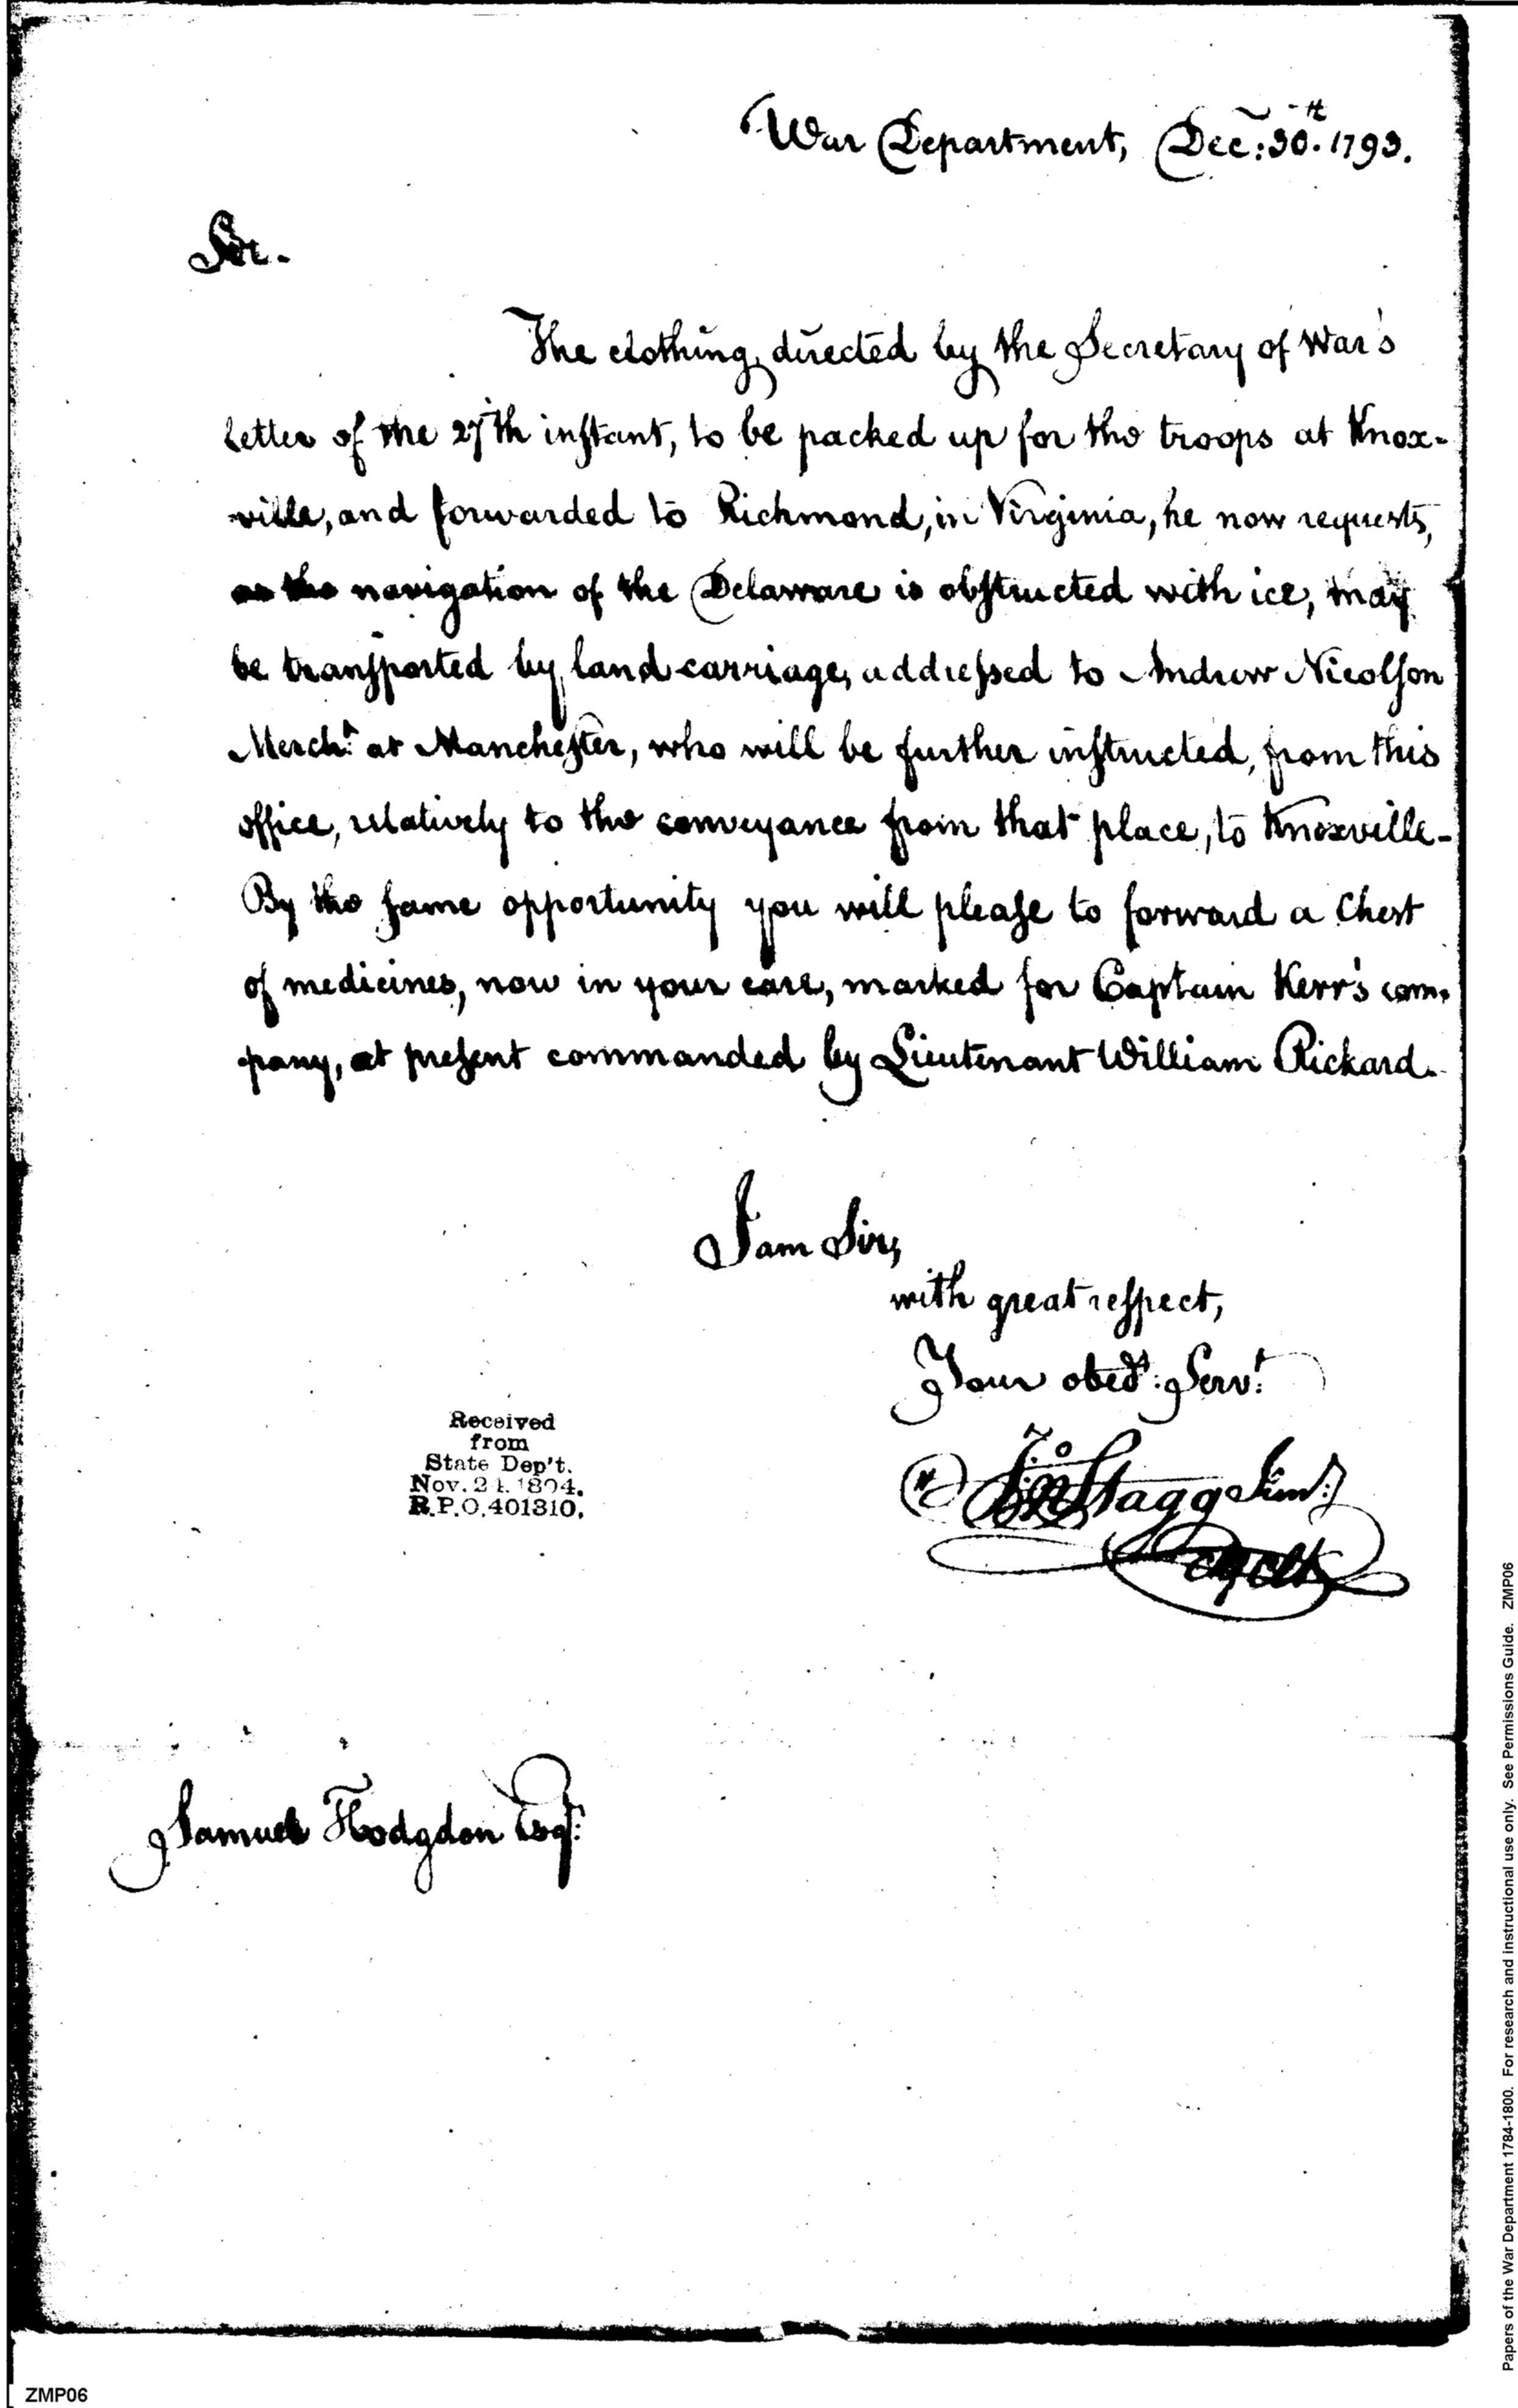 War Department, Dec.: 30.th 1793.
Sir.
The clothing, directed by the Secretary of War's
letter of the 27th instant, to be packed up for the troops at Knox-
ville, and forwarded to Richmond, in Virginia, he now requests,
as the navigation of the Delaware is obstructed with ice, may
be transported by land carriage, addressed to Andrew Nicolson
Mercht. at Manchester, who will be further instructed, from this
office, relatively to the conveyance from that place, to Knoxville-
By the same opportunity you will please to forward a Chest
of medicines, now in your care, marked for Captain Kerr's com-
pany, at present commanded by Lieutenant William Rickard.
I am Sir,
with great respect,
Your obedt: Servt:
Jno Stagg Junr:
Received
from
State Dep't.
Nov. 21. 1894.
R.P.O. 401310.
Samuel Hodgdon Esqr:
Papers of the War Department 1784-1800. For research and instructional use only. See Permissions Guide. ZMP06
ZMP06